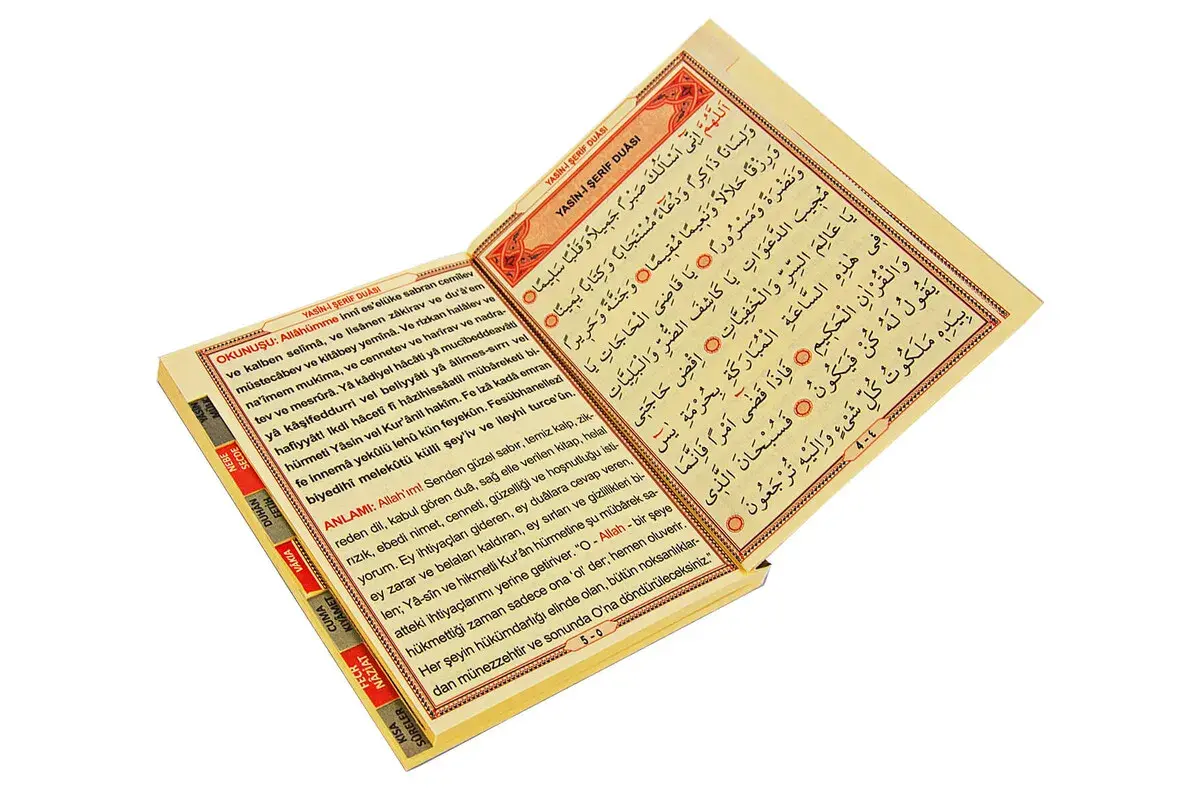 YASİN-İ ŞERİF DUÂSI
YASİN-İ ŞERİF DUÂSI
اَللّٰهُمَّ اِنِّى اَسْاَلُكَ صَبْرًا جَمِيلاً وَقَلْبًا سَلِيمًا
وَلِسَانًا ذَاكِرًا وَدُعَٓاءً مُسْتَجَابًا وَكِتَابًا يَمِينًا
وَرِزْقًا حَلَالاً وَنَعِيمًا مُقِيمًا وَجَنَّةً وَحَرِيرًا
وَنَضْرَةً وَمَسْرُورًا يَا قَاضِىَ الْحَاجَاتِ يَا
مُجِيبَ الدَّعَوَاتِ يَا كَاشِفَ الضُّرِّ وَالْبَلِيَّاتِ
يَا عَالِمَ السِّرِّ وَالْخَفِيَّاتِ اِقْضِ حَاجَتِى
فِى هٰذِهِ السَّاعَةِ الْمُبَارَكَةِ بِحُرْمَةِ يٰسٓ
وَالْقُرْاٰنِ الْحَكِيمِ فَاِذَا قَضٰٓى اَمْرًا فَاِنَّمَا
يَقُولُ لَهُ كُنْ فَيَكُونُ فَسُبْحَانَ الَّذِى
بِيَدِهِ مَلَكُوتُ كُلِّ شَيْءٍ وَاِلَيْهِ تُرْجَعُونَ
4 - ٤
YASİN-İ ŞERİF DUÂSI
OKUNUŞU: Allâhümme innî es'elüke sabran cemîlev
ve kalben selîmâ, ve lisânen zâkirav ve du'â'em
müstecâbev ve kitâbey yemînâ. Ve rizkan halâlev ve
na'îmem mukîma, ve cennetev ve harîrav ve nadra-
tev ve mesrûrâ. Yâ kâdiyel hâcâti yâ mucîbeddeavâti
yâ kâşifeddurri vel beliyyâti yâ âlimes-sırri vel
hafiyyâti ikdi hâcetî fî hâzihissâatil mübâreketi bi-
hürmeti Yâsîn vel Kur'ânil hakîm. Fe izâ kadâ emran
fe innemâ yekûlü lehû kün feyekûn. Fesübhanellezî
biyedihî melekûtü külli şey'iv ve ileyhi turce'ûn.
ANLAMI: Allah'ım! Senden güzel sabır, temiz kalp, zik-
reden dil, kabul gören duâ, sağ elle verilen kitap, helal
rızık, ebedi nimet, cenneti, güzelliği ve hoşnutluğu isti-
yorum. Ey ihtiyaçları gideren, ey duâlara cevap veren,
ey zarar ve belaları kaldıran, ey sırları ve gizlilikleri bi-
len; Yâ-sîn ve hikmetli Kur'ân hürmetine şu mübârek sa-
atteki ihtiyaçlarımı yerine getiriver. "O - Allah - bir şeye
hükmettiği zaman sadece ona 'ol' der; hemen oluverir.
Her şeyin hükümdarlığı elinde olan, bütün noksanlıklar-
dan münezzehtir ve sonunda O'na döndürüleceksiniz."
5 - ٥
NEBE SECDE
DUHÂN FETİH
VAKIA
CUMA KIYÂMET
FECR NÂZİAT
KISA SÛRELER